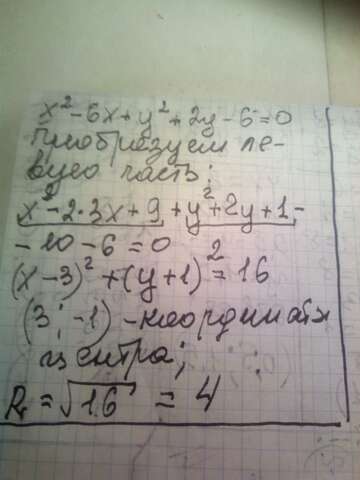 x² - 6x + y² + 2y - 6 = 0
Преобразуем ле-
вую часть:
x² - 2·3x + 9 + y² + 2y + 1 -
- 10 - 6 = 0
(x - 3)² + (y + 1)² = 16
(3; -1) - координаты
центра;
R = √16 = 4